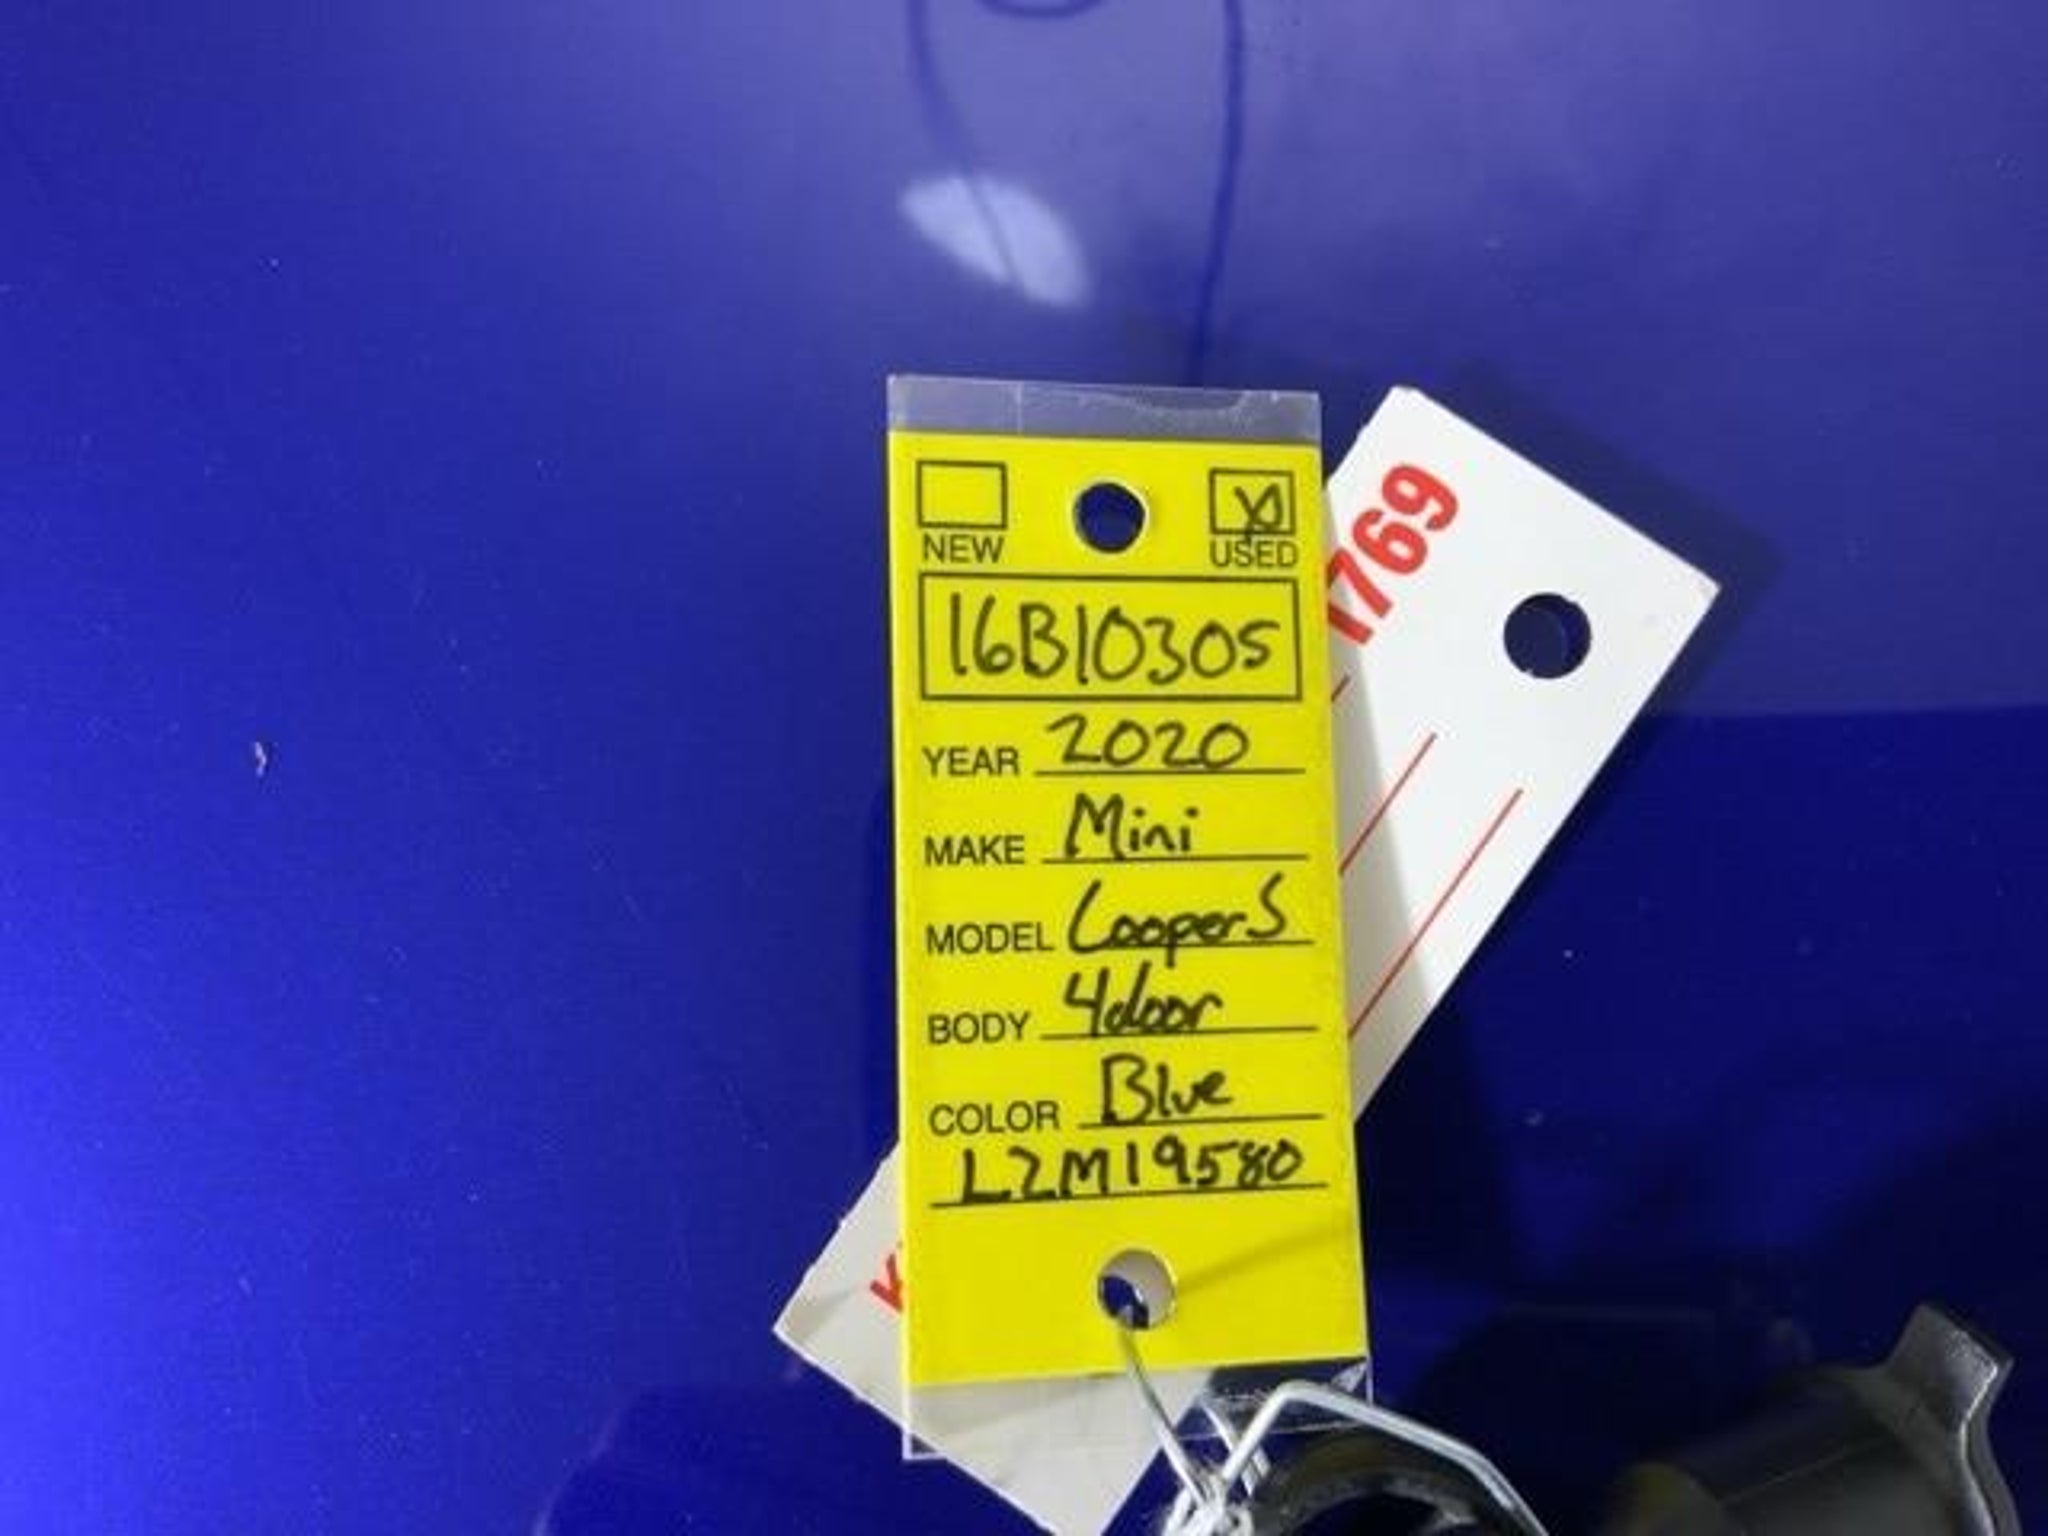 NEW USED
16B1030S
YEAR 2020
MAKE Mini
MODEL Cooper S
BODY 4door
COLOR Blue
L2M19580
1769
K